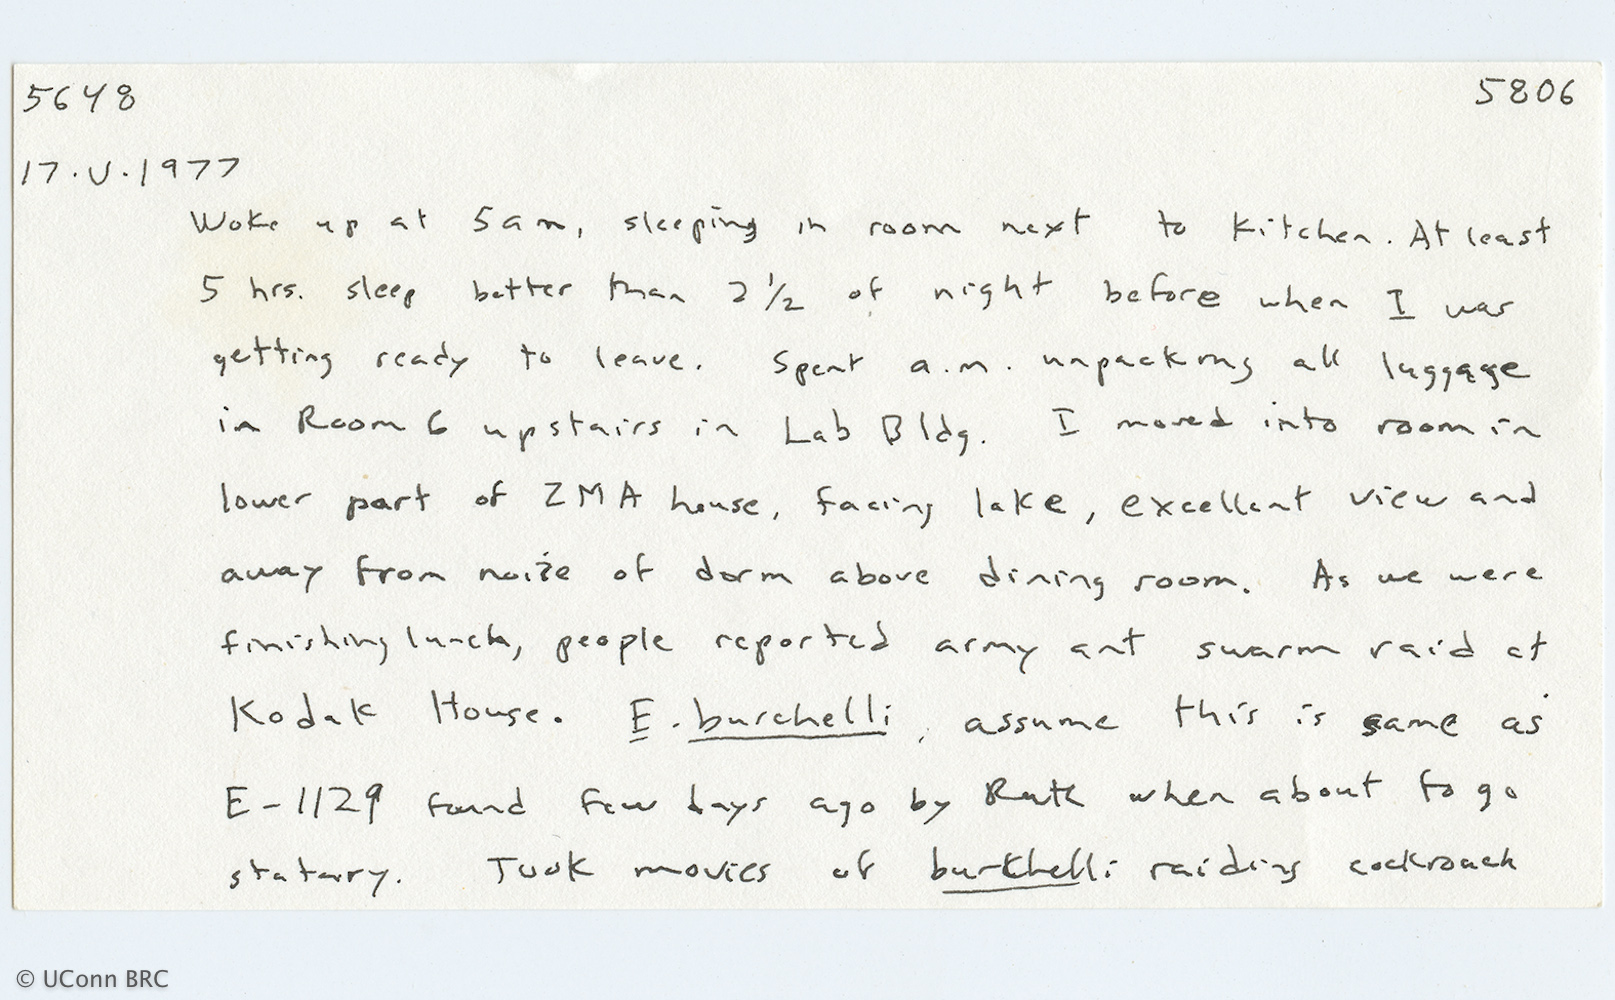 5648
5806
17.V.1977
Woke up at 5am, sleeping in room next to kitchen. At least
5 hrs. sleep better than 2 1/2 of night before when I was
getting ready to leave. Spent a.m. unpacking all luggage
in Room 6 upstairs in Lab Bldg. I moved into room in
lower part of ZMA house, facing lake, excellent view and
away from noise of dorm above dining room. As we were
finishing lunch, people reported army ant swarm raid at
Kodak House. E. burchelli, assume this is same as
E-1129 found few days ago by Ruth when about to go
statary. Took movies of burchelli raiding cockroach
© UConn BRC